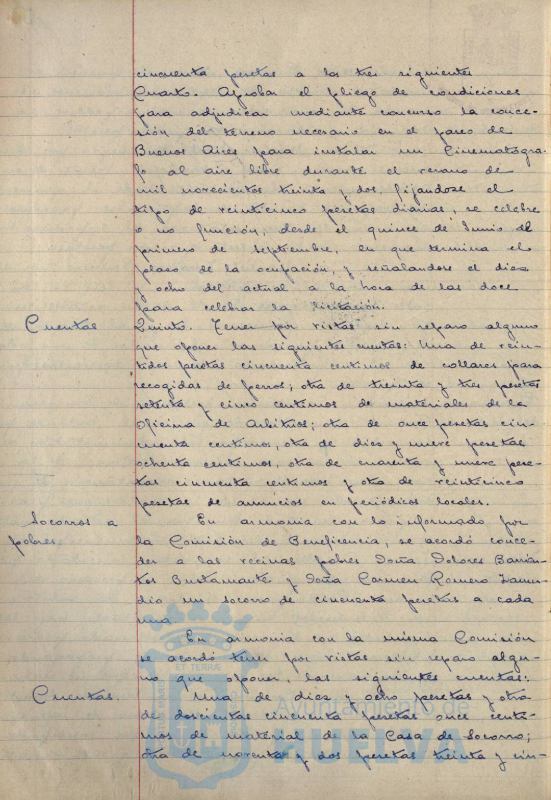 cincuenta pesetas a los tres siguientes
Cuarto. Aprobar el pliego de condiciones
para adjudicar mediante concurso la conce-
sión del terreno necesario en el paseo de
Buenos Aires para instalar un Cinematógra-
fo al aire libre durante el verano de
mil novecientos treinta y dos, fijandose el
tipo de veinticinco pesetas diarias, se celebre
o no función, desde el quince de Junio al
primero de septiembre, en que termina el
plaso de la ocupación, y señalandose el diez
y ocho del actual a la hora de las doce
para celebrar la licitación.
Cuentas
Quinto. Tener por vistas sin reparo alguno
que oponer las siguientes cuentas: Una de vein-
tidos pesetas cincuenta centimos de collares para
recogidas de perros; otra de treinta y tres pesetas
setenta y cinco centimos de materiales de la
Oficina de Arbitrios; otra de once pesetas cin-
cuenta centimos, otra de diez y nueve pesetas
ochenta centimos, otra de cuarenta y nueve pese-
tas cincuenta centimos y otra de veinticinco
pesetas de anuncios en periódicos locales.
Socorros a
pobres
En armonia con lo informado por
la Comisión de Beneficencia, se acordó conce-
der a las vecinas pobres Doña Dolores Barrian-
tos Bustamante y Doña Carmen Romero Zamu-
dio un socorro de cincuenta pesetas a cada
una
En armonia con la misma Comisión
se acordó tener por vistas sin reparo algu-
no que oponer, las siguientes cuentas:
Cuentas.
Una de diez y ocho pesetas y otra
de doscientas cincuenta pesetas once centi-
mos de material de la Casa de Socorro;
otra de noventa y dos pesetas treinta y cin-
Ayuntamiento de
HUELVA